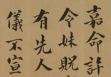 嘉命計
令妹既
有先人
儀不宣